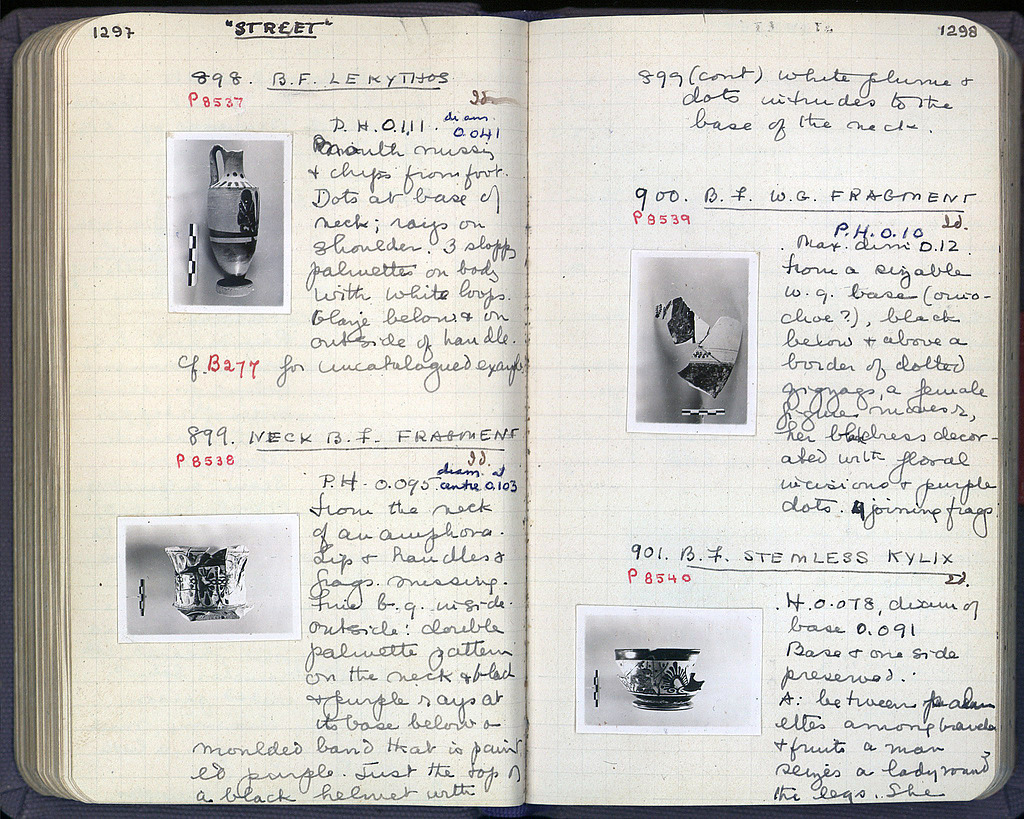 1297
"STREET"
898. B.F. LEKYTHOS
P 8537
P.H. 0.111. diam.
0.041
Mouth missing
& chips from foot.
Dots at base of
neck; rays on
shoulder. 3 sloppy
palmettes on body
with white loops.
Glaze below & on
outside of handle.
Cf. B277 for uncatalogued example
899. NECK B.F. FRAGMENT
P 8538
P.H. 0.095. diam. at
centre 0.103
From the neck
of an amphora.
Lip & handles &
frags. missing.
Fine b.g. inside.
Outside: double
palmette pattern
on the neck & black
& purple rays at
its base below a
moulded band that is paint
ed purple. Just the top of
a black helmet with
1298
899 (cont) white plume &
dots intrudes to the
base of the neck.
900. B.F. W.G. FRAGMENT
P 8539
P.H. 0.10
Max. dim 0.12
From a sizable
w.g. base (oino-
choe?), black
below & above a
border of dotted
zigzags, a female
figure moves r,
her dress decor-
ated with floral
incisions & purple
dots. 4 joining frags
901. B.F. STEMLESS KYLIX
P 8540
H. 0.078, diam of
base 0.091
Base & one side
preserved.
A: between palm
ettes among
& fruits a man
seizes a lady round
the legs. She